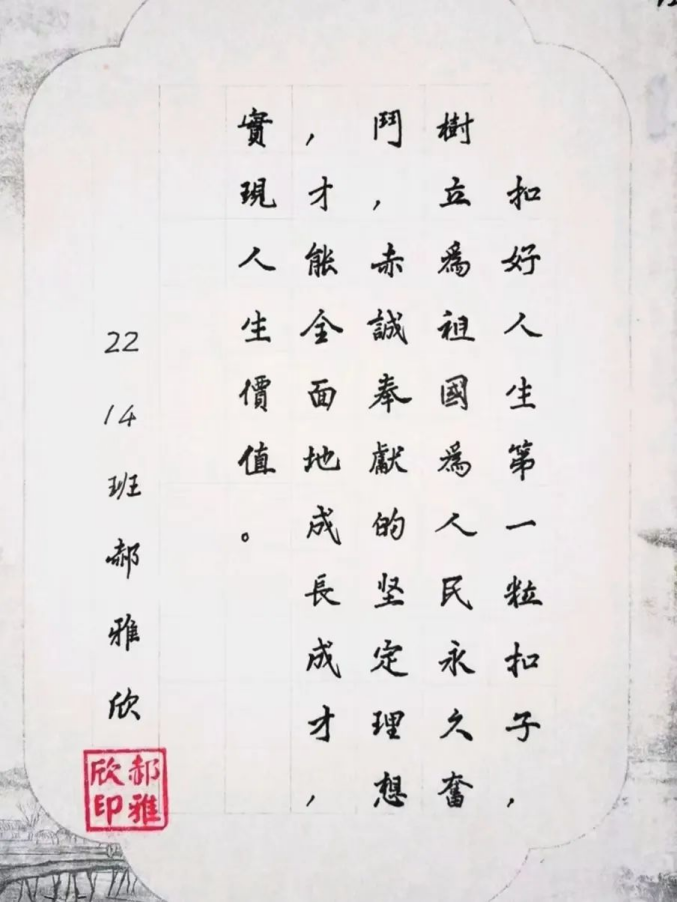 扣好人生第一粒扣子，
樹立為祖國為人民永久奮
鬥，赤誠奉獻的坚定理想
，才能全面地成長成才，
實現人生價值。
22
14班郝雅欣
郝雅
欣印